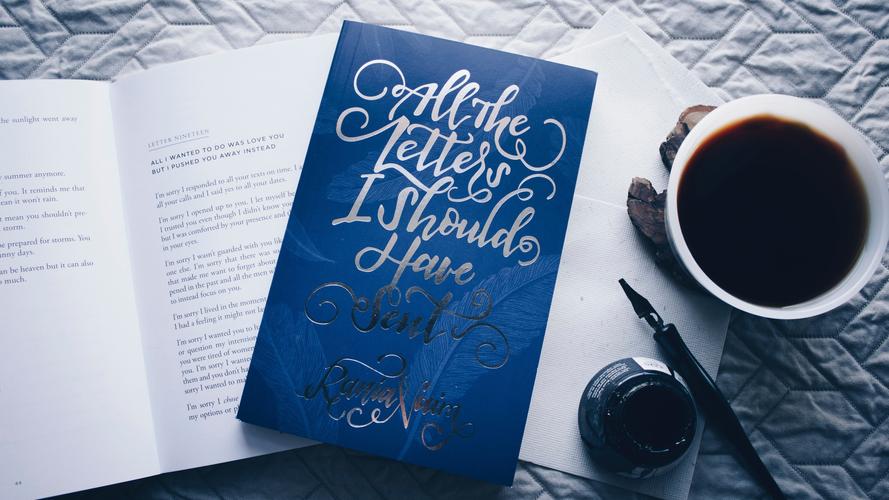 the sunlight went away
y summer anymore.
f you. It reminds me that
ean it won't rain.
t mean you shouldn't pre-
storm.
e prepared for storms. You
nny days.
an be heaven but it can also
o much.
44
LETTER NINETEEN
ALL I WANTED TO DO WAS LOVE YOU
BUT I PUSHED YOU AWAY INSTEAD
I'm sorry I responded to all your texts on time. I a
all your calls and I said yes to all your dates.
I'm sorry I opened up to you. I let myself be
I trusted you even though I didn't know you
but I was comforted by your presence and t
in your eyes.
I'm sorry I wasn't guarded with you lik
one else. I'm sorry that there was so
that made me want to forget about
pened in the past and all the men wh
to instead focus on you.
I'm sorry I lived in the moment
I had a feeling it might not la
I'm sorry I wanted you to h
or question my intention
you were tired of women
you. I'm sorry I wante
them and you don't ha
sorry I wanted to ma
I'm sorry I chose
my options or p
All the
Letters
I Should
Have
Sent
Rania Naim